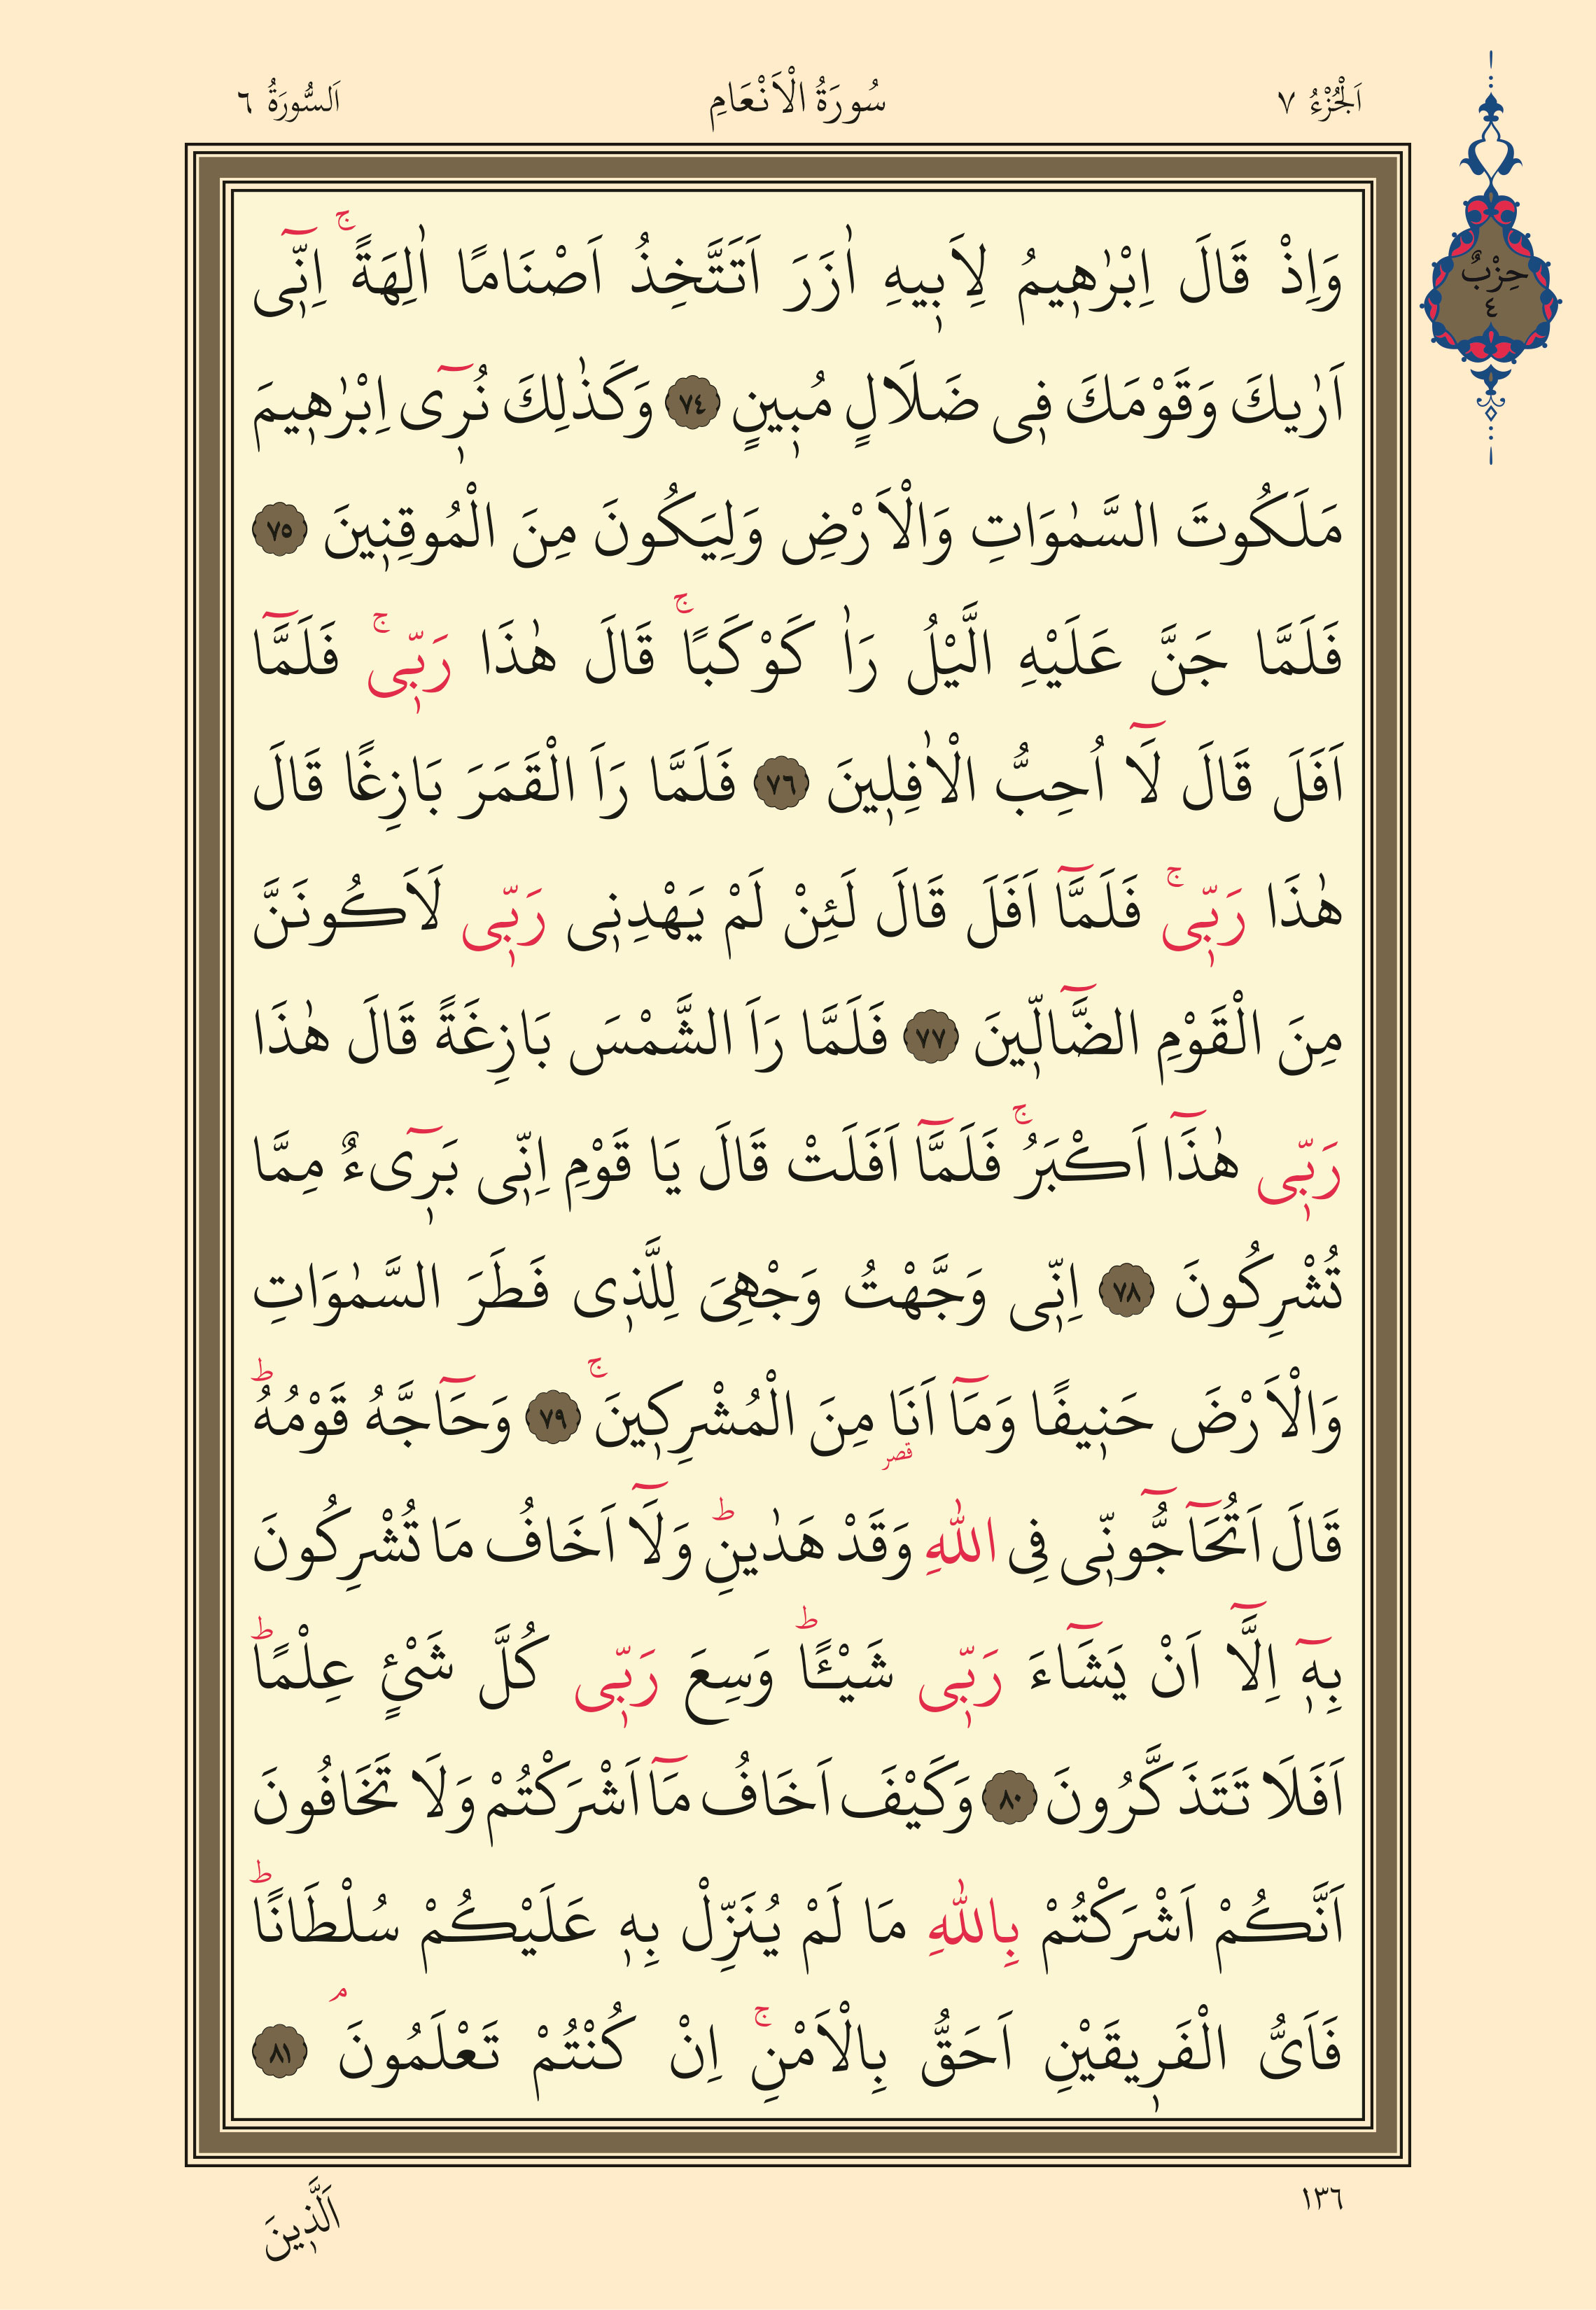 اَلْجُزْءُ ٧ سُورَةُ الْاَنْعَامِ اَلسُّورَةُ ٦
حِزْبٌ
٤
وَاِذْ قَالَ اِبْرٰه۪يمُ لِاَب۪يهِ اٰزَرَ اَتَتَّخِذُ اَصْنَامًا اٰلِهَةًۚ اِنّ۪ٓى
اَرٰيكَ وَقَوْمَكَ ف۪ى ضَلَالٍ مُب۪ينٍ ٧٤ وَكَذٰلِكَ نُر۪ٓى اِبْرٰه۪يمَ
مَلَكُوتَ السَّمٰوَاتِ وَالْاَرْضِ وَلِيَكُونَ مِنَ الْمُوقِن۪ينَ ٧٥
فَلَمَّا جَنَّ عَلَيْهِ الَّيْلُ رَاٰ كَوْكَبًاۚ قَالَ هٰذَا رَبّ۪ىۚ فَلَمَّٓا
اَفَلَ قَالَ لَٓا اُحِبُّ الْاٰفِل۪ينَ ٧٦ فَلَمَّا رَاَ الْقَمَرَ بَازِغًا قَالَ
هٰذَا رَبّ۪ىۚ فَلَمَّٓا اَفَلَ قَالَ لَئِنْ لَمْ يَهْدِن۪ى رَبّ۪ى لَاَكُونَنَّ
مِنَ الْقَوْمِ الضَّٓالّ۪ينَ ٧٧ فَلَمَّا رَاَ الشَّمْسَ بَازِغَةً قَالَ هٰذَا
رَبّ۪ى هٰذَٓا اَكْبَرُۚ فَلَمَّٓا اَفَلَتْ قَالَ يَا قَوْمِ اِنّ۪ى بَر۪ٓىءٌ مِمَّا
تُشْرِكُونَ ٧٨ اِنّ۪ى وَجَّهْتُ وَجْهِىَ لِلَّذ۪ى فَطَرَ السَّمٰوَاتِ
وَالْاَرْضَ حَن۪يفًا وَمَٓا اَنَا۬ مِنَ الْمُشْرِك۪ينَۚ ٧٩ وَحَٓاجَّهُ قَوْمُهُۜ
قصر
قَالَ اَتُحَٓاجُّٓونّ۪ى فِى اللّٰهِ وَقَدْ هَدٰينِۜ وَلَٓا اَخَافُ مَا تُشْرِكُونَ
بِه۪ٓ اِلَّٓا اَنْ يَشَٓاءَ رَبّ۪ى شَيْـًٔاۜ وَسِعَ رَبّ۪ى كُلَّ شَىْءٍ عِلْمًاۜ
اَفَلَا تَتَذَكَّرُونَ ٨٠ وَكَيْفَ اَخَافُ مَٓا اَشْرَكْتُمْ وَلَا تَخَافُونَ
اَنَّكُمْ اَشْرَكْتُمْ بِاللّٰهِ مَا لَمْ يُنَزِّلْ بِه۪ عَلَيْكُمْ سُلْطَانًاۜ
فَاَىُّ الْفَر۪يقَيْنِ اَحَقُّ بِالْاَمْنِۚ اِنْ كُنْتُمْ تَعْلَمُونَۢ ٨١
١٣٦ اَلَّذ۪ينَ